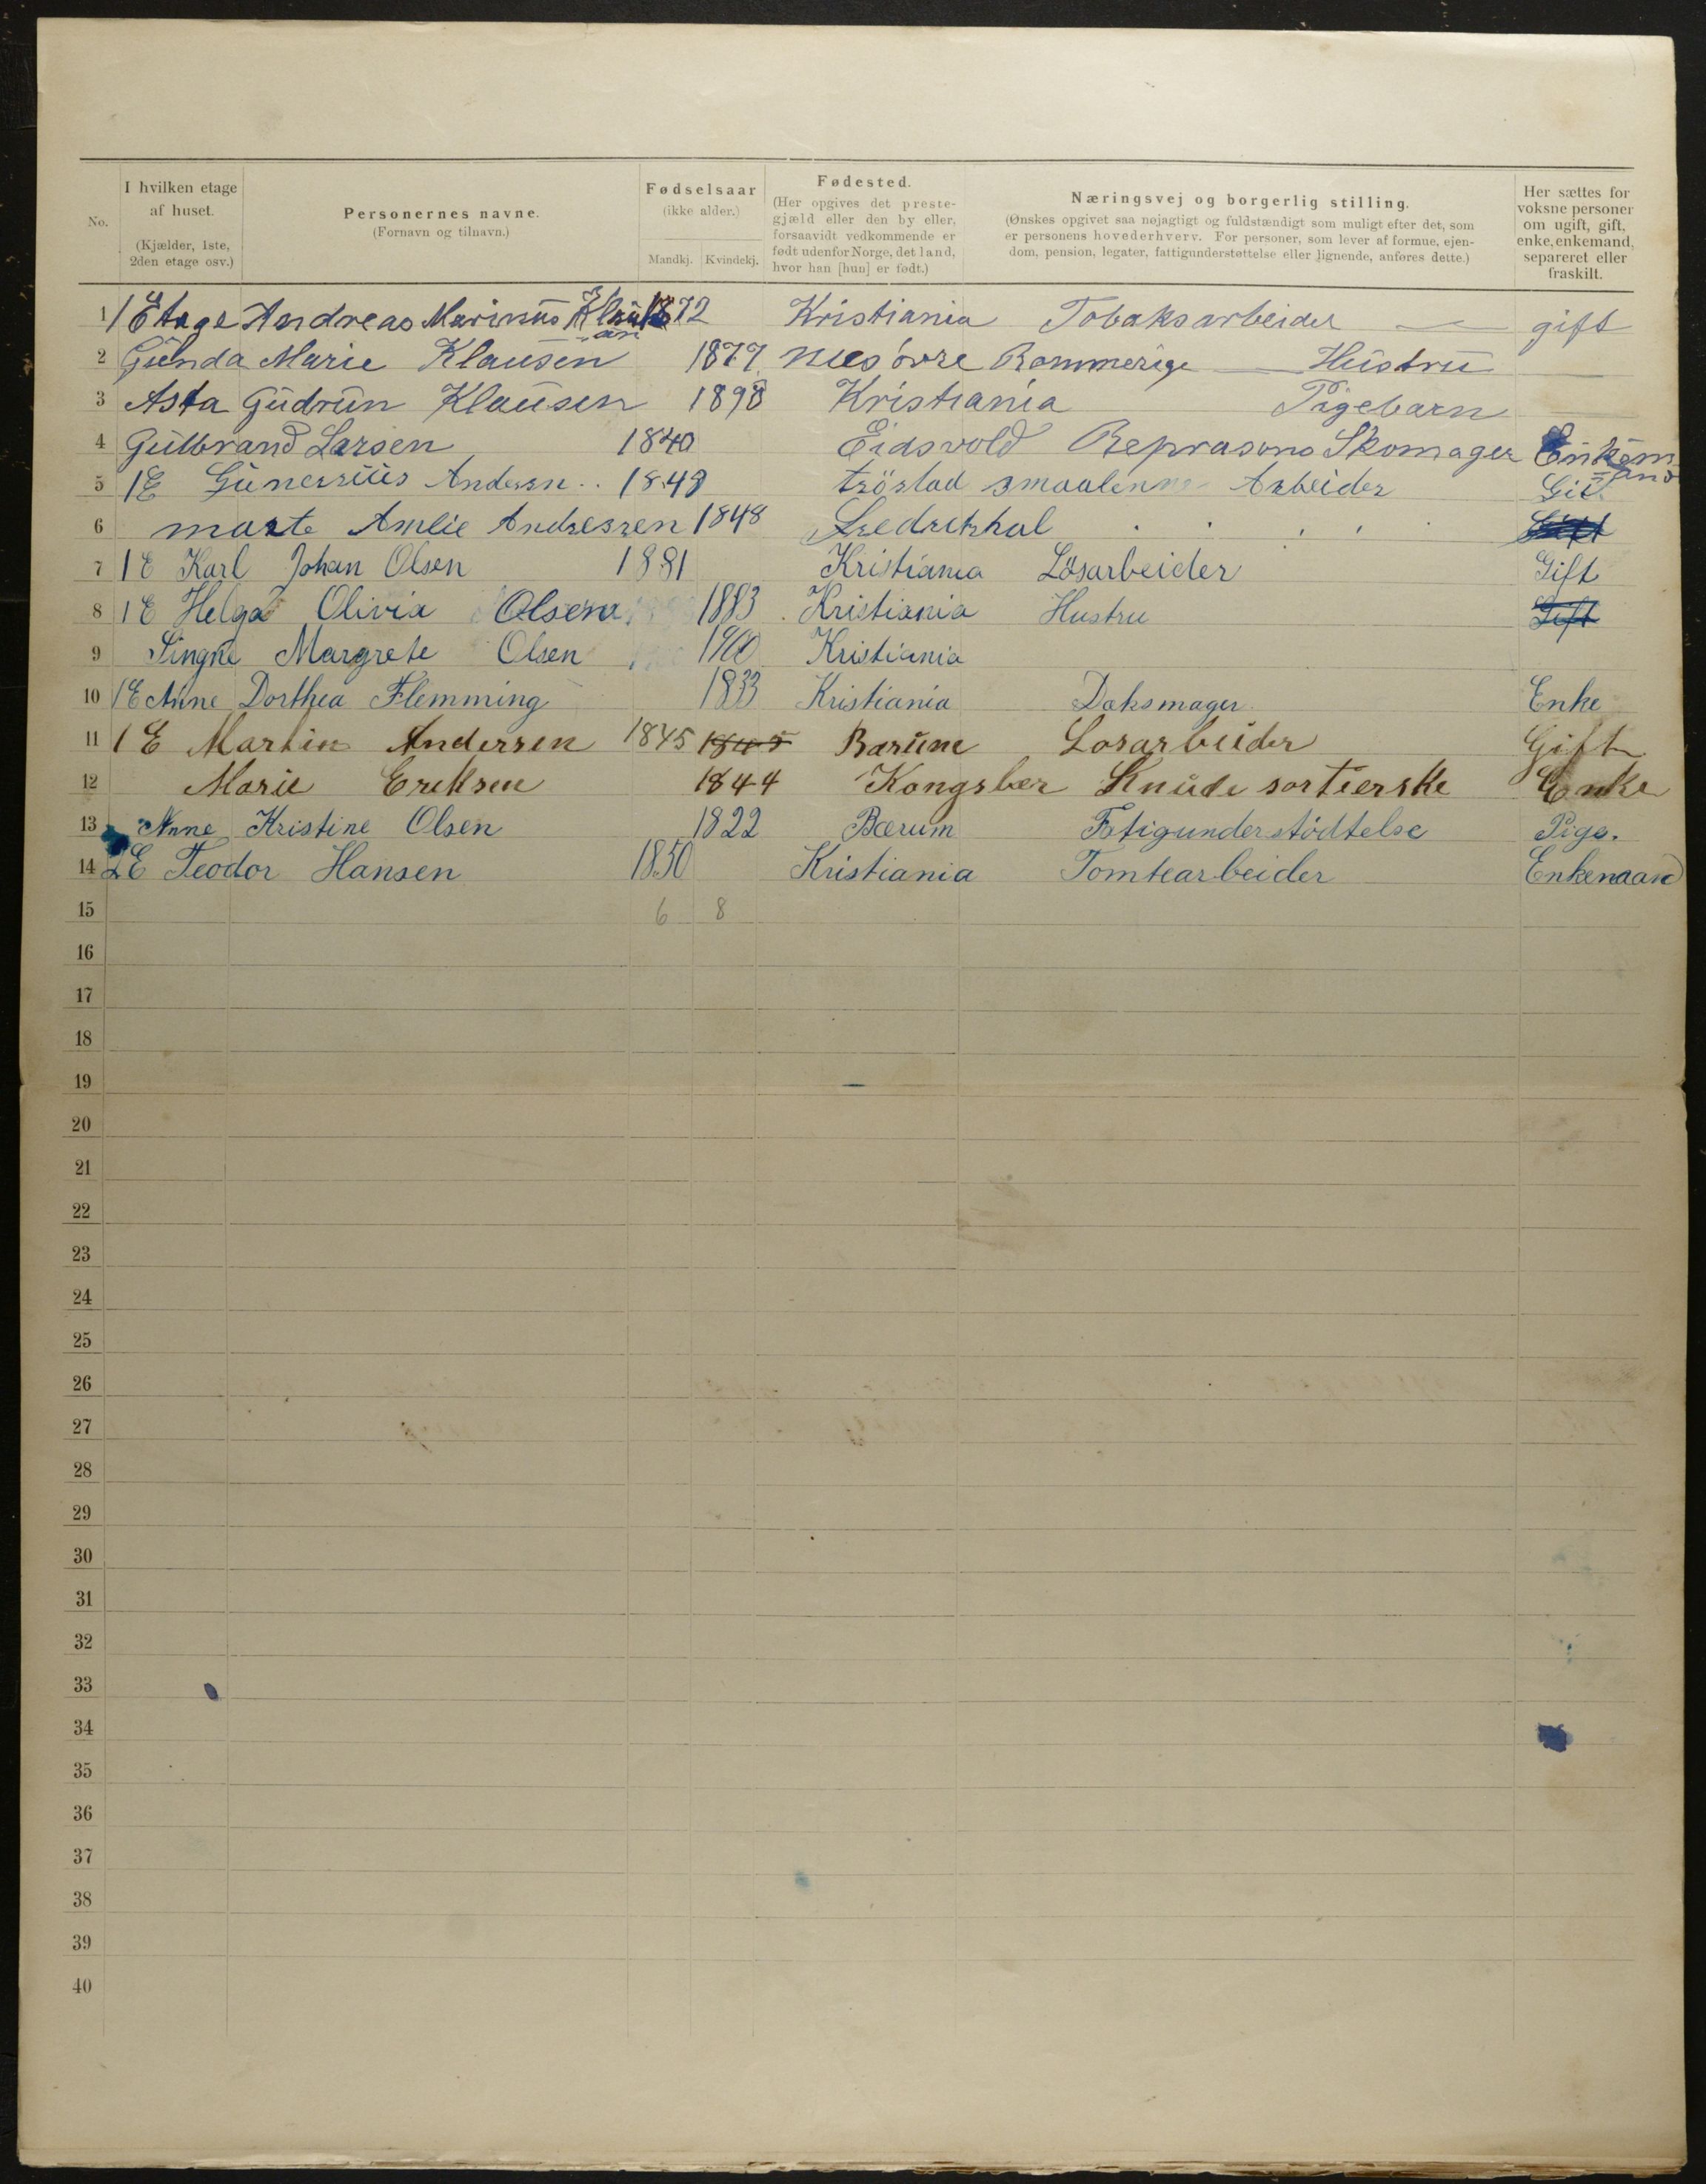 No.
I hvilken etage af huset.
(Kjælder, 1ste, 2den etage osv.)
Personernes navne.
(Fornavn og tilnavn.)
Fødselsaar
(ikke alder.)
Mandkj. Kvindekj.
Fødested.
(Her opgives det prestegjæld eller den by eller, forsaavidt vedkommende er født udenfor Norge, det land, hvor han [hun] er født.)
Næringsvej og borgerlig stilling.
(Ønskes opgivet saa nøjagtigt og fuldstændigt som muligt efter det, som er personens hovederhverv. For personer, som lever af formue, ejendom, pension, legater, fattigunderstøttelse eller lignende, anføres dette.)
Her sættes for voksne personer om ugift, gift, enke, enkemand, separeret eller fraskilt.
1 1 Etage Andreas Marinus 1872 Kristiania Tobaksarbeider gift
2 Gunda Marie Klausen 1877 Nes övre Rommerige Hustru
3 Asta Gudrun Klausen 1898 Kristiania Pigebarn
4 Gulbrand Larsen 1840 Eidsvold Reprasons Skomager Enkemand
5 1 E Gunerius Andersn 1848 tröstad smaalenne Arbeider Git
6 marte Amlie Andressen 1848 Gift
7 1 E Karl Johan Olsen 1881 Kristiania Lösarbeider Gift
8 1 E Helga Olivia Olsen 1883 Kristiania Hustru Gift
9 Singne Margrete Olsen 1900 Kristiania
10 1 E Anne Dorthea Flemming 1833 Kristiania Daksmager Enke
11 1 E Martin Andersen 1845 1845 Barüm Losarbeider Gift
12 Marie Eriksen 1844 Kongsber Knude sortierske Enke
13 Anne Kristine Olsen 1822 Bærum Fatigunderstödtelse Pige.
14 2 E Teodor Hansen 1850 Kristiania Tomtearbeider Enkemand
15 6 8
16
17
18
19
20
21
22
23
24
25
26
27
28
29
30
31
32
33
34
35
36
37
38
39
40